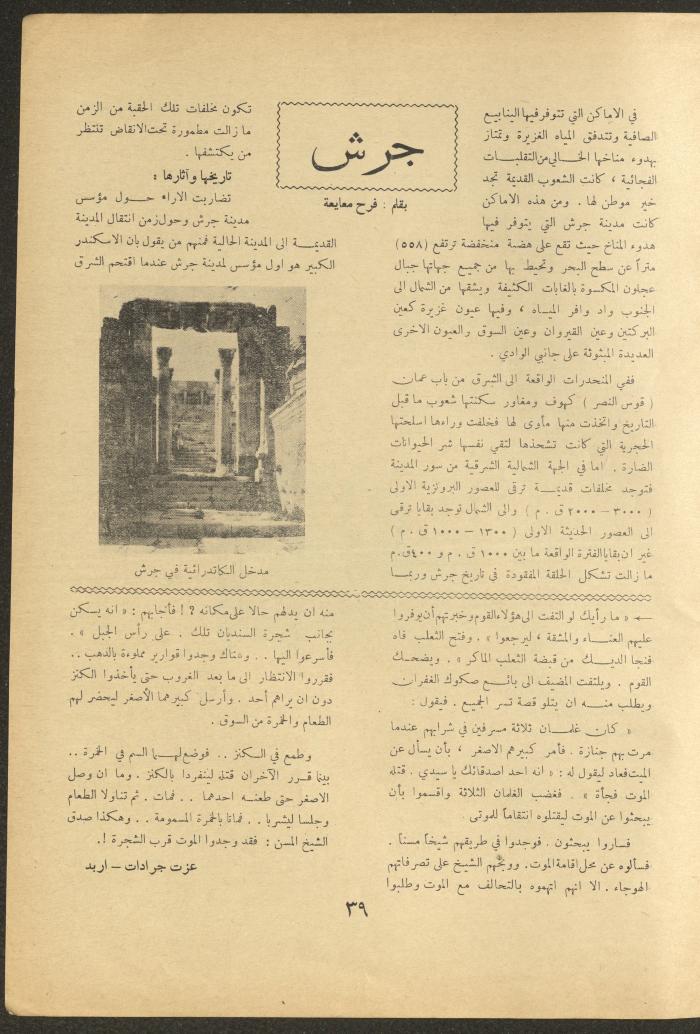 جرش
بقلم : فرح معايعة
في الاماكن التي تتوفر فيها الينابيع
الصافية وتتدفق المياه الغزيرة وتمتاز
بهدوء مناخها الخالي من التقلبات
الفجائية ، كانت الشعوب القديمة تجد
خير موطن لها . ومن هذه الاماكن
كانت مدينة جرش التي يتوفر فيها
هدوء المناخ حيث تقع على هضبة منخفضة ترتفع (٥٥٨)
متراً عن سطح البحر وتحيط بها من جميع جهاتها جبال
عجلون المكسوة بالغابات الكثيفة ويشقها من الشمال الى
الجنوب واد وافر المياه ، وفيها عيون غزيرة كعين
البركتين وعين القيروان وعين السوق والعيون الاخرى
العديدة المبثوثة على جانبي الوادي .
ففي المنحدرات الواقعة الى الشرق من باب عمان
( قوس النصر ) كهوف ومغاور سكنتها شعوب ما قبل
التاريخ واتخذت منها مأوى لها فخلفت وراءها اسلحتها
الحجرية التي كانت تشحذها لتقي نفسها شر الحيوانات
الضارة . اما في الجهة الشمالية الشرقية من سور المدينة
فتوجد مخلفات قديمة ترقى للعصور البرونزية الاولى
( ٣٠٠٠ – ٢٠٠٠ ق . م ) والى الشمال توجد بقايا ترقى
الى العصور الحديثة الاولى ( ١٣٠٠ – ١٠٠٠ ق . م )
غير ان بقايا الفترة الواقعة ما بين ١٠٠٠ ق . م و ٤٠٠ ق.م
ما زالت تشكل الحلقة المفقودة في تاريخ جرش وربما
تكون مخلفات تلك الحقبة من الزمن
ما زالت مطمورة تحت الانقاض تنتظر
من يكتشفها .
تاريخها وآثارها :
تضاربت الاراء حول مؤسس
مدينة جرش وحول زمن انتقال المدينة
القديمة الى المدينة الحالية فمنهم من يقول بان الاسكندر
الكبير هو اول مؤسس لمدينة جرش عندما اقتحم الشرق
مدخل الكاتدرائية في جرش
← « ما رأيك لو التفت الى هؤلاء القوم وخبرتهم أن يوفروا
عليهم العناء والمشقة ، ليرجعوا » . وفتح الثعلب فاه
فنجا الديك من قبضة الثعلب الماكر » . ويضحك
القوم . ويلتفت المضيف الى بائع صكوك الغفران
ويطلب منه ان يتلو قصة تسر الجميع . فيقول :
« كان غلمان ثلاثة مسرفين في شرابهم عندما
مرت بهم جنازة . فأمر كبيرهم الاصغر ، بأن يسأل عن
الميت فعاد ليقول له : « انه احد اصدقائك يا سيدي . قتله
الموت فجأة » . فغضب الغلمان الثلاثة واقسموا بأن
يبحثوا عن الموت ليقتلوه انتقاماً للموتى
فساروا يبحثون . فوجدوا في طريقهم شيخاً مسناً .
فسألوه عن محل اقامة الموت. ووبخهم الشيخ على تصرفاتهم
الهوجاء . الا انهم اتهموه بالتحالف مع الموت وطلبوا
منه ان يدلهم حالا على مكانه ؟ ! فأجابهم : « انه يسكن
بجانب شجرة السنديان تلك . على رأس الجبل » .
فأسرعوا اليها . . وهناك وجدوا قوارير مملوءة بالذهب . .
فقرروا الانتظار الى ما بعد الغروب حتى يأخذوا الكنز
دون ان يراهم أحد . وأرسل كبيرهما الأصغر ليحضر لهم
الطعام والخمرة من السوق .
وطمع في الكنز . . فوضع لهما السم في الخمرة . .
بينما قرر الآخران قتله لينفردا بالكنز . وما ان وصل
الاصغر حتى طعنه احدهما . . فمات . ثم تناولا الطعام
وجلسا ليشربا . . فماتا بالخمرة المسمومة . . وهكذا صدق
الشيخ المسن : فقد وجدوا الموت قرب الشجرة !.
عزت جرادات – اربد
٣٩